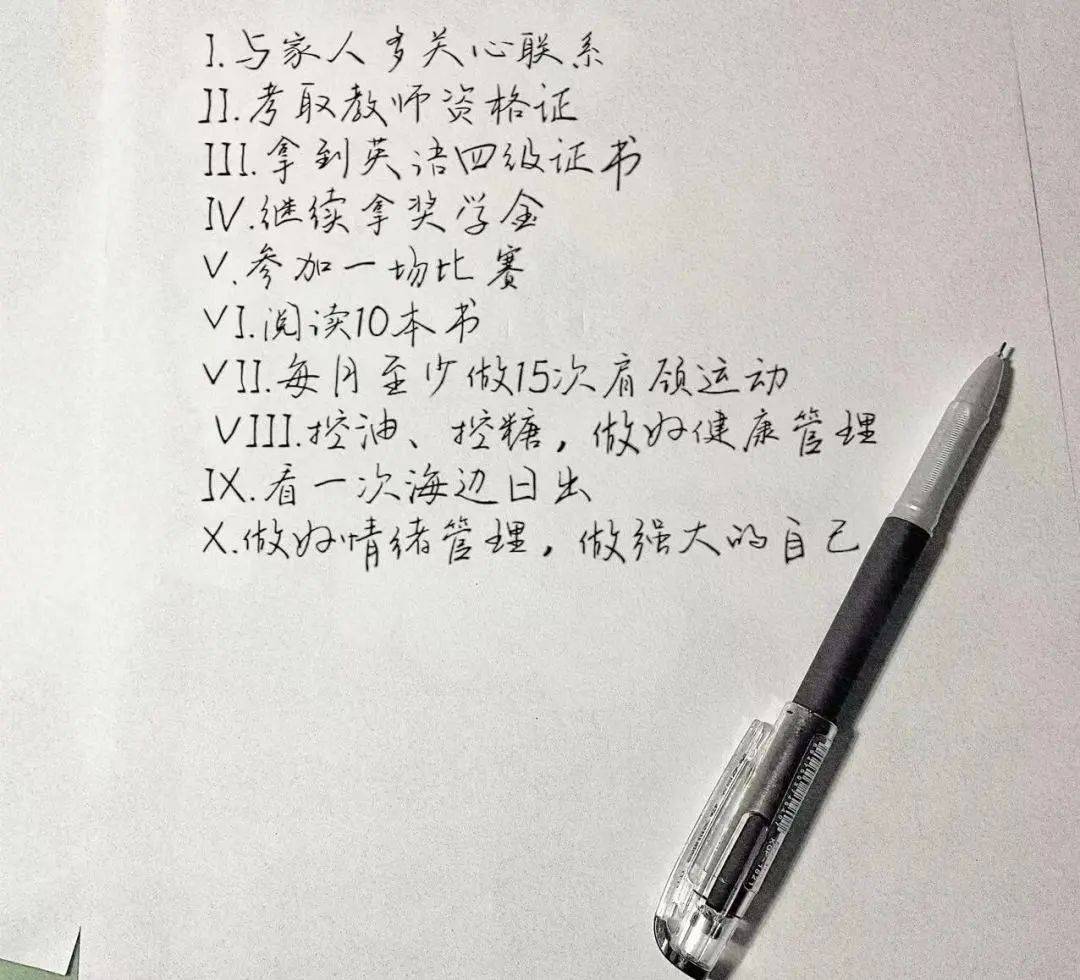 I.与家人多关心联系
II.考取教师资格证
III.拿到英语四级证书
IV.继续拿奖学金
V.参加一场比赛
VI.阅读10本书
VII.每月至少做15次肩颈运动
VIII.控油、控糖，做好健康管理
IX.看一次海边日出
X.做好情绪管理，做强大的自己